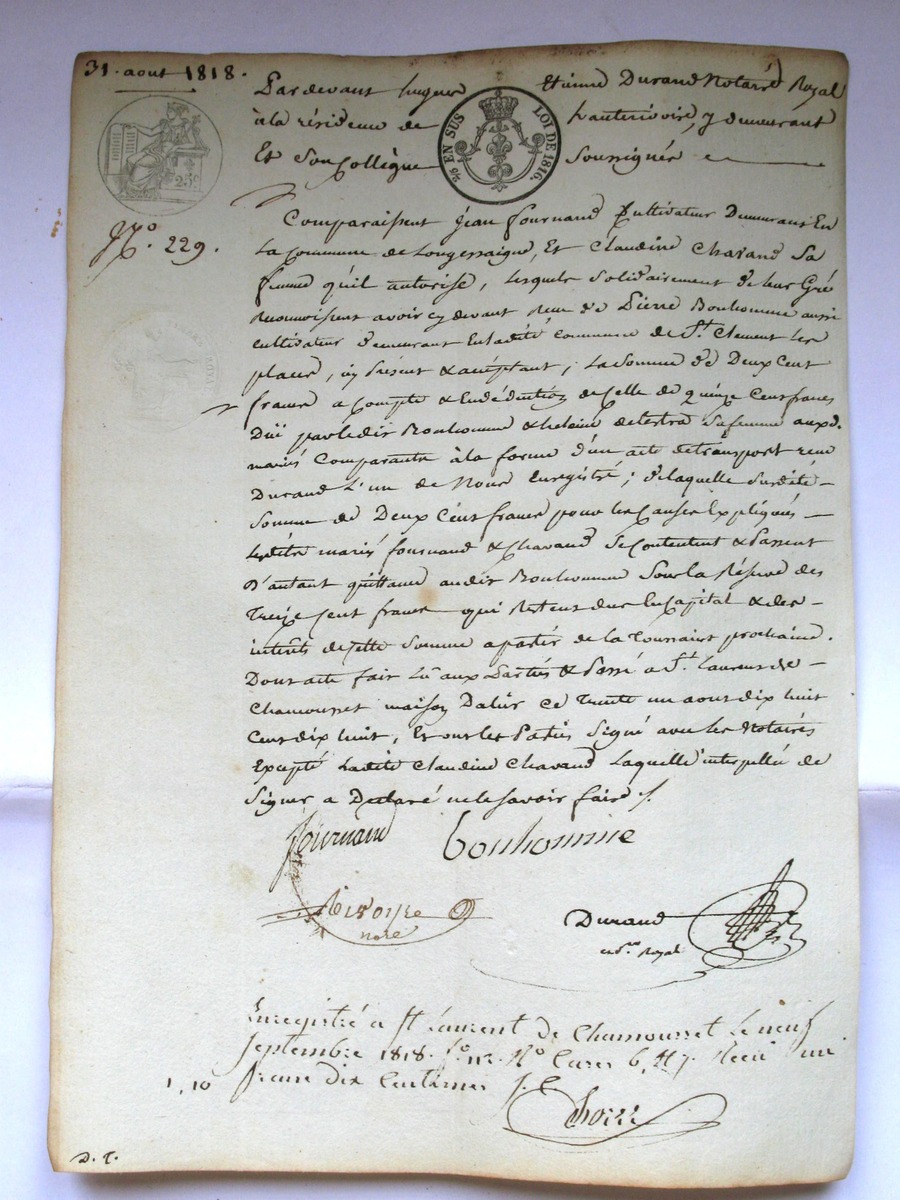 31. aout 1818.
Pardevant hugues Etienne Durand Notaire Royal
à la résidence de hauterivoire, y demeurant
Et Son Collègue Soussignés
EN SUS LOI DE 1816.
25c
No. 229.
Comparaissent Jean fournand Cultivateur Demeurant En
La Commune de Longessaigne, Et Claudine Chavand Sa
femme qu'il autorise, Lesquels Solidairement de leur Gré
Reconnoissent avoir cy devant Reçu de Pierre Bonhomme aussi
Cultivateur demeurant En ladite Commune de St. Clement les
places, icy présent & acceptant, la Somme de Deux Cent
francs a Compte & En déduction de Celle de quinze Cent francs
Düe par ledit Bonhomme & helaine sa femme auxd.
mariés Comparants à la forme d'un acte de transport reçu
Durand L'un de Nous Enregistré ; de laquelle Susdite
Somme de Deux Cent francs pour les Causes Expliqués
Lesdits mariés fournand & Chavand Se Contentent & Passent
D'autant quittance audit Bonhomme Sous la Réserve des
Treize Cent francs qui Restent dus En Capital & des
intérêts de Cette Somme a partir de la Toussaint prochaine.
Dont acte fait Lû aux Parties & Passé a St. Laurent de
Chamousset maison Dalin Ce Trente un aout dix huit
Cent dix huit, Et ont les Parties Signé avec les Notaires
Excepté Ladite Claudine Chavand Laquelle interpellée de
Signer a Déclaré ne le Savoir faire /.
fournand bonhomme
nore
Durand
Royal
Enregistré a St Laurent de Chamousset Le neuf
Septembre 1818. fo. 112. Ro Cases 6, & 7. Reçu un
1,10 franc dix Centimes
D. T.